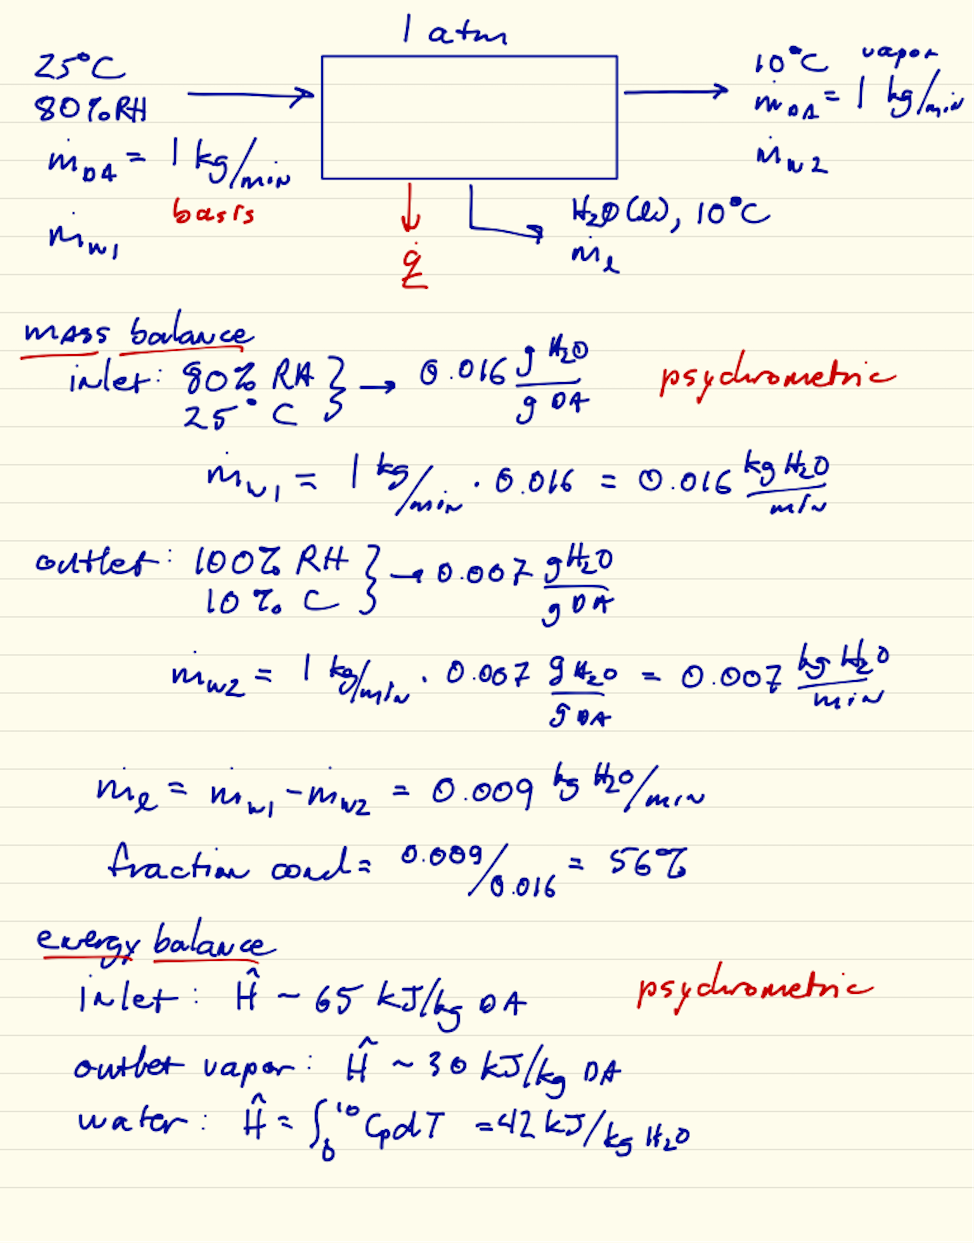 1 atm
25°C
80% RH
ṁ_DA = 1 kg/min
basis
ṁ_w1
10°C vapor
ṁ_DA = 1 kg/min
ṁ_w2
q̇
H₂O(l), 10°C
ṁ_l
mass balance
inlet: 80% RH } → 0.016 g H₂O / g DA psychrometric
25° C
ṁ_w1 = 1 kg/min · 0.016 = 0.016 kg H₂O / min
outlet: 100% RH } → 0.007 g H₂O / g DA
10 % C
ṁ_w2 = 1 kg/min · 0.007 g H₂O / g DA = 0.007 kg H₂O / min
ṁ_l = ṁ_w1 - ṁ_w2 = 0.009 kg H₂O/min
fraction cond = 0.009/0.016 = 56%
energy balance
inlet: Ĥ ~ 65 kJ/kg DA psychrometric
outlet vapor: Ĥ ~ 30 kJ/kg DA
water: Ĥ = ∫₀¹⁰ Cp dT = 42 kJ/kg H₂O